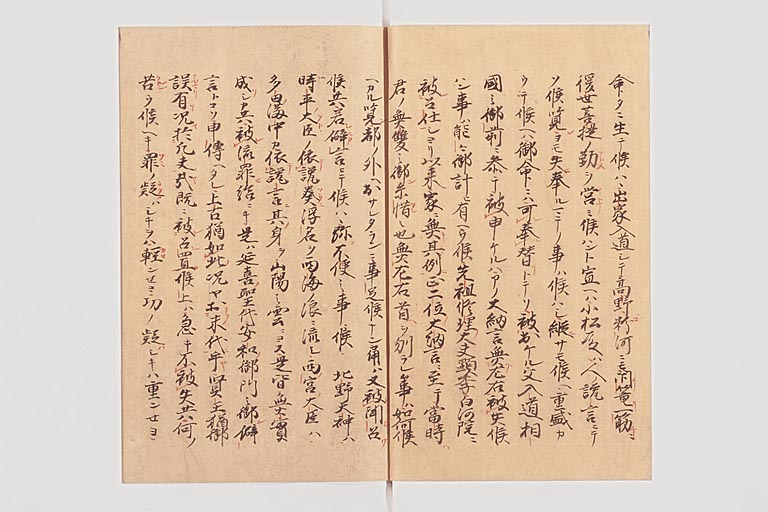 命タニ生テ候ハヽ出家入道シテ高野粉河ニ閉篭一筋ニ
後世菩提ノ勤ヲ営ミ候ハント宣ヘハ小松殿人ノ讒言ニテ
ソ候覧ヲモ失奉ルマテノ事ハ候ハシ縦サモ候ヘ重盛カ
ウテ候ヘハ御命ニハ可奉替トテソ被出ケル父入道相
國ノ御前ニ参テ被申ケルハアノ大納言無左右被失候
ハン事ハ能々御計ヒ有ヘク候先祖修理大夫顕季白河院ニ
被召仕シヨリ以来家ニ無其例正二位大納言ニ至テ當時ハ
君ノ無雙ノ御糸惜ミ也無左右首ヲ刎ラレン事ハ如何候
ヘカル覧都ノ外ヘ出サレタランニ事足候ナン角ハ又被聞召
候共若僻言ニテ候ハヽ弥不便ノ事ニ候ヘシ北野天神ハ
時平大臣ノ依讒奏浮名ヲ西海ノ浪ニ流シ西宮大臣ハ
多田満中カ依讒言其身ヲ山陽ノ雲ニヨス是皆無實
成シ共被流罪給ニキ是ハ延喜聖代安和御門ノ御僻
言トコソ申傳ヘタレ上古猶如此况ヤ於末代乎賢王猶御
誤有况於凡夫哉既ニ被召置候上ハ急キ不被失共何ノ
苦ヲ候ヘキ罪ノ疑シキヲハ軽ンセヨ功ノ疑シキハ重ンセヨ